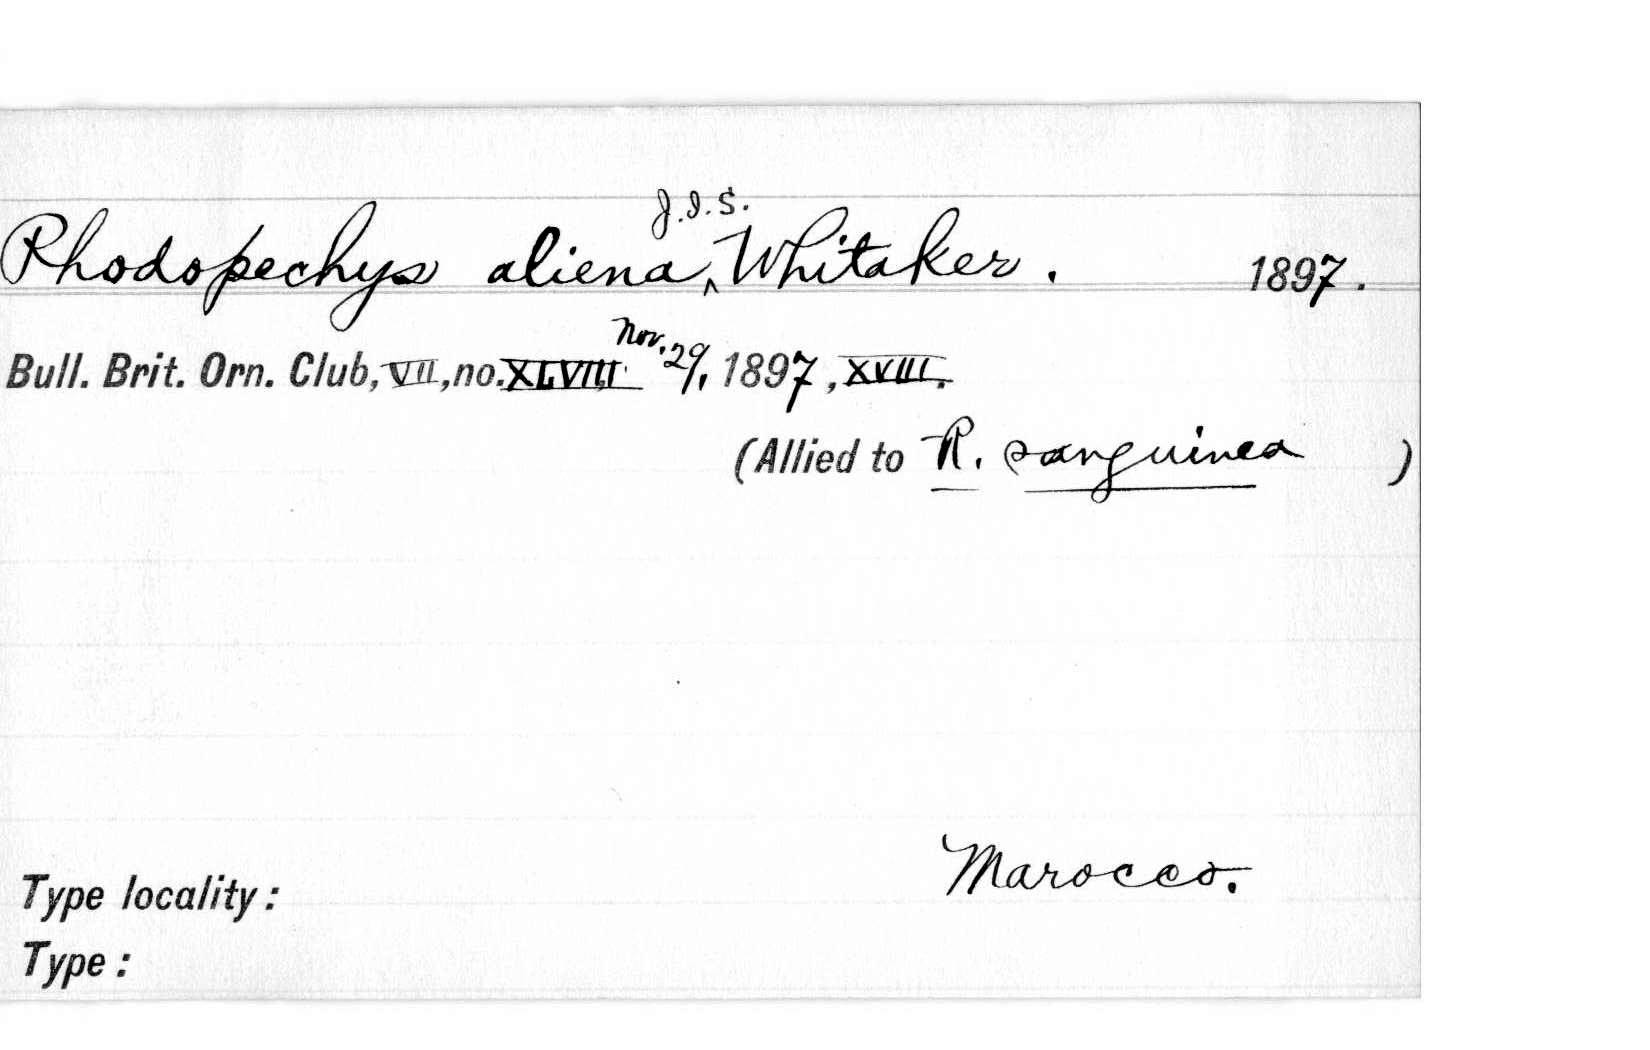 J.I.S.
Rhodopechys aliena ^ Whitaker. 1897.
Nov.
Bull. Brit. Orn. Club, VII, no. XLVIII, 29, 1897, XVIII.
(Allied to R. sanguinea )
Marocco.
Type locality:
Type: